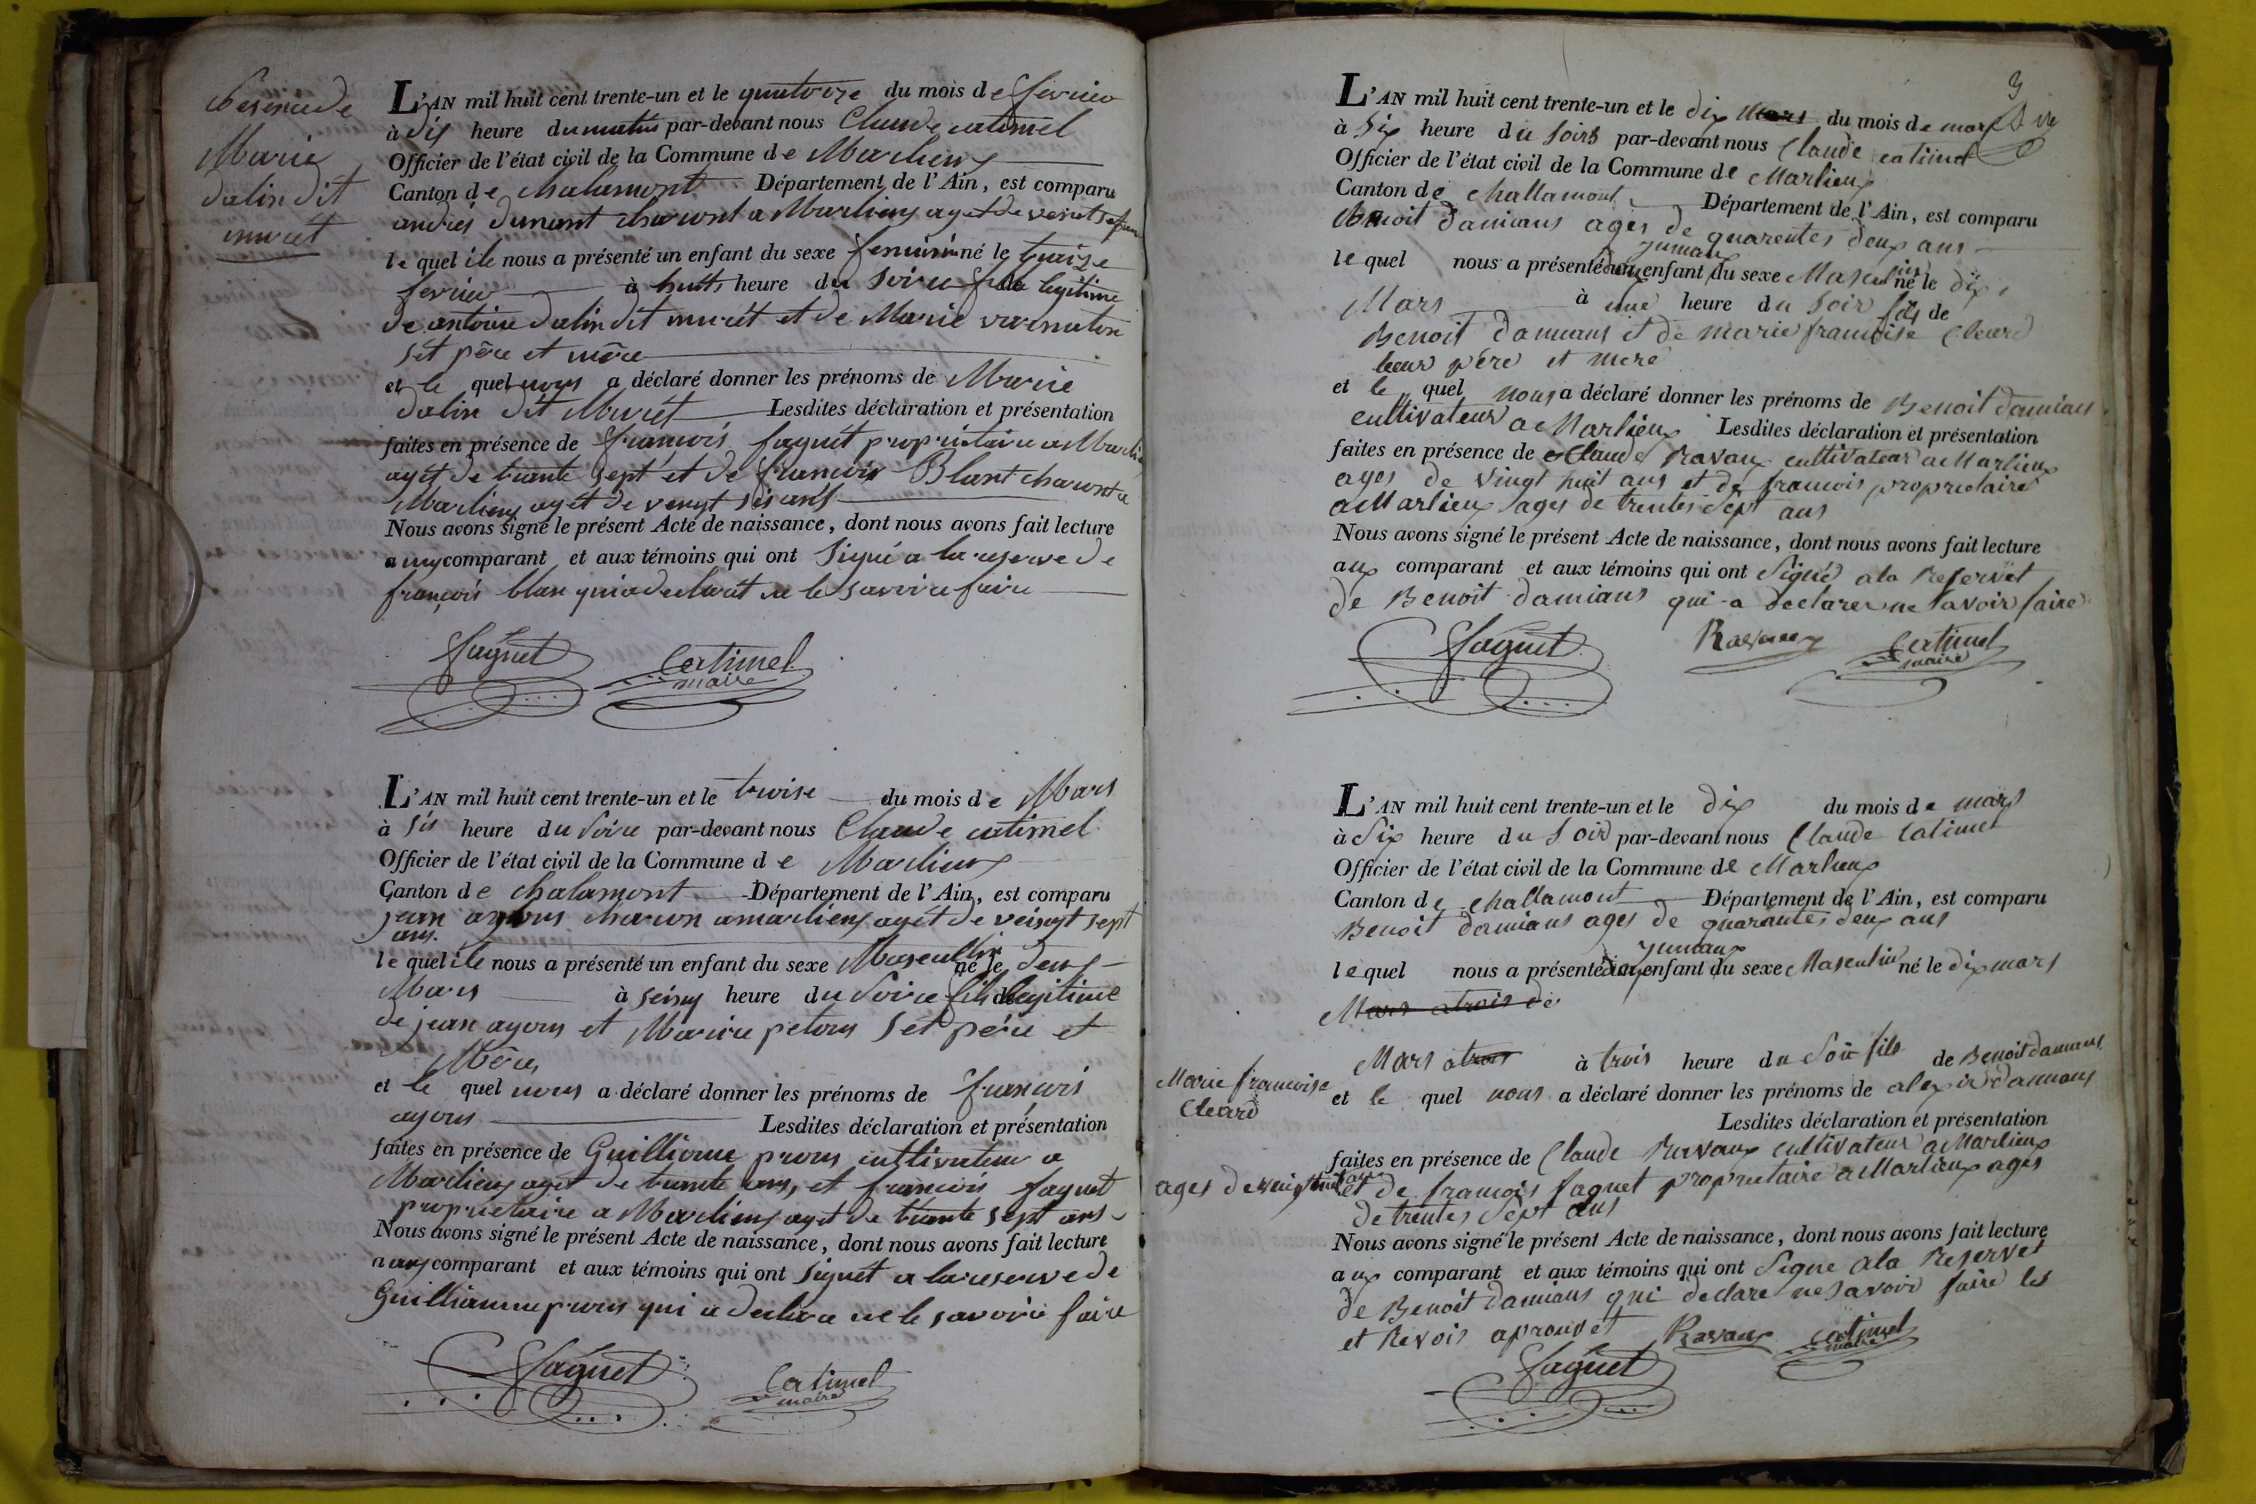 Marie
dalin dit
murét
L'AN mil huit cent trente-un et le quatorze du mois de fevrier
à dis heure du matin par-devant nous Claude catimel
Officier de l'état civil de la Commune de Marlieux
Canton de chalamont Département de l'Ain, est comparu
andrés dunant charont a Marlieux agét de
le quel ile nous a présenté un enfant du sexe feminin né le traize
fevrier à huits heure du soire fille legitime
de antoine dalin dit murét et de Marie
sét pére et mére
et le quel nous a déclaré donner les prénoms de Marie
dalin dit Murét Lesdites déclaration et présentation
faites en présence de françois faguét propriétaire a Marlieu
agét de trante sept et de françois Blant charont a
Marlieux agét de vengt sis ans
Nous avons signé le présent Acte de naissance, dont nous avons fait lecture
aux comparant et aux témoins qui ont signé a la reserve de
françois blan qui a declarét ne le savoire faire
faguet Catimel
maire
L'AN mil huit cent trente-un et le troise du mois de Mars
à sis heure du soire par-devant nous Claude catimel
Officier de l'état civil de la Commune de Marlieux
Canton de chalamont Département de l'Ain, est comparu
jean ayous charon a marlieux agét de veingt sept
ans.
le quel ile nous a présenté un enfant du sexe Masculin né le deux
Mars à seinq heure du soire fils de legitime
de jean ayous et Marie petous sét pére et
Mére
et le quel nous a déclaré donner les prénoms de françois
ayous Lesdites déclaration et présentation
faites en présence de Guilliaume prous cultivateur a
Marlieux agét de trante ans, et françois faguet
propriétaire a Marlieux agét de trante sept ans
Nous avons signé le présent Acte de naissance, dont nous avons fait lecture
aux comparant et aux témoins qui ont signét a la reserve de
Guilliaume prous qui a declare ne le savoire faire
faguet Catimel
maire
3
L'AN mil huit cent trente-un et le dix mars du mois de mars
à six heure du soirs par-devant nous Claude catimel
Officier de l'état civil de la Commune de Marlieux
Canton de challamont Département de l'Ain, est comparu
Benoit damians ages de quarentes deux ans
jumaux
le quel nous a présenté deux enfant du sexe Masculin né le dix
Mars à une heure du soir fils de
Benoit damians et de marie francoise Cleard
leur pére et mere
et le quel nous a déclaré donner les prénoms de Benoit damians
cultivateur a Marlieux Lesdites déclaration et présentation
faites en présence de Claude Ravaux cultivateur a Marlieux
ages de vingt huit ans et de francois proprietaire
a Marlieux ages de trentes sept ans
Nous avons signé le présent Acte de naissance, dont nous avons fait lecture
aux comparant et aux témoins qui ont Signé a la Reservet
de Benoit damians qui a declarer ne savoir faire
faguet Ravaux Catimel
maire
L'AN mil huit cent trente-un et le dix du mois de mars
à Six heure du Soir par-devant nous Claude Catimel
Officier de l'état civil de la Commune de Marlieux
Canton de challamont Département de l'Ain, est comparu
Benoit damians ages de quarantes deux ans
jumaux
le quel nous a présenté deux enfant du sexe Masculin né le dix mars
Mars a trois de
Mars a trois à trois heure du Soir fils de Benoit damians
Marie francoise
Cleard
et le quel nous a déclaré donner les prénoms de alexis damians
Lesdites déclaration et présentation
faites en présence de Claude Ravaux cultivateur a Marlieux
ages de vingt huit ans et de francois faguet proprietaire a Marlieux ages
de trentes sept ans
Nous avons signé le présent Acte de naissance, dont nous avons fait lecture
aux comparant et aux témoins qui ont Signe a la Reservet
de Benoit damians qui declare ne savoir faire les
et Revois aprouvét Ravaux catimel
maire
faguet